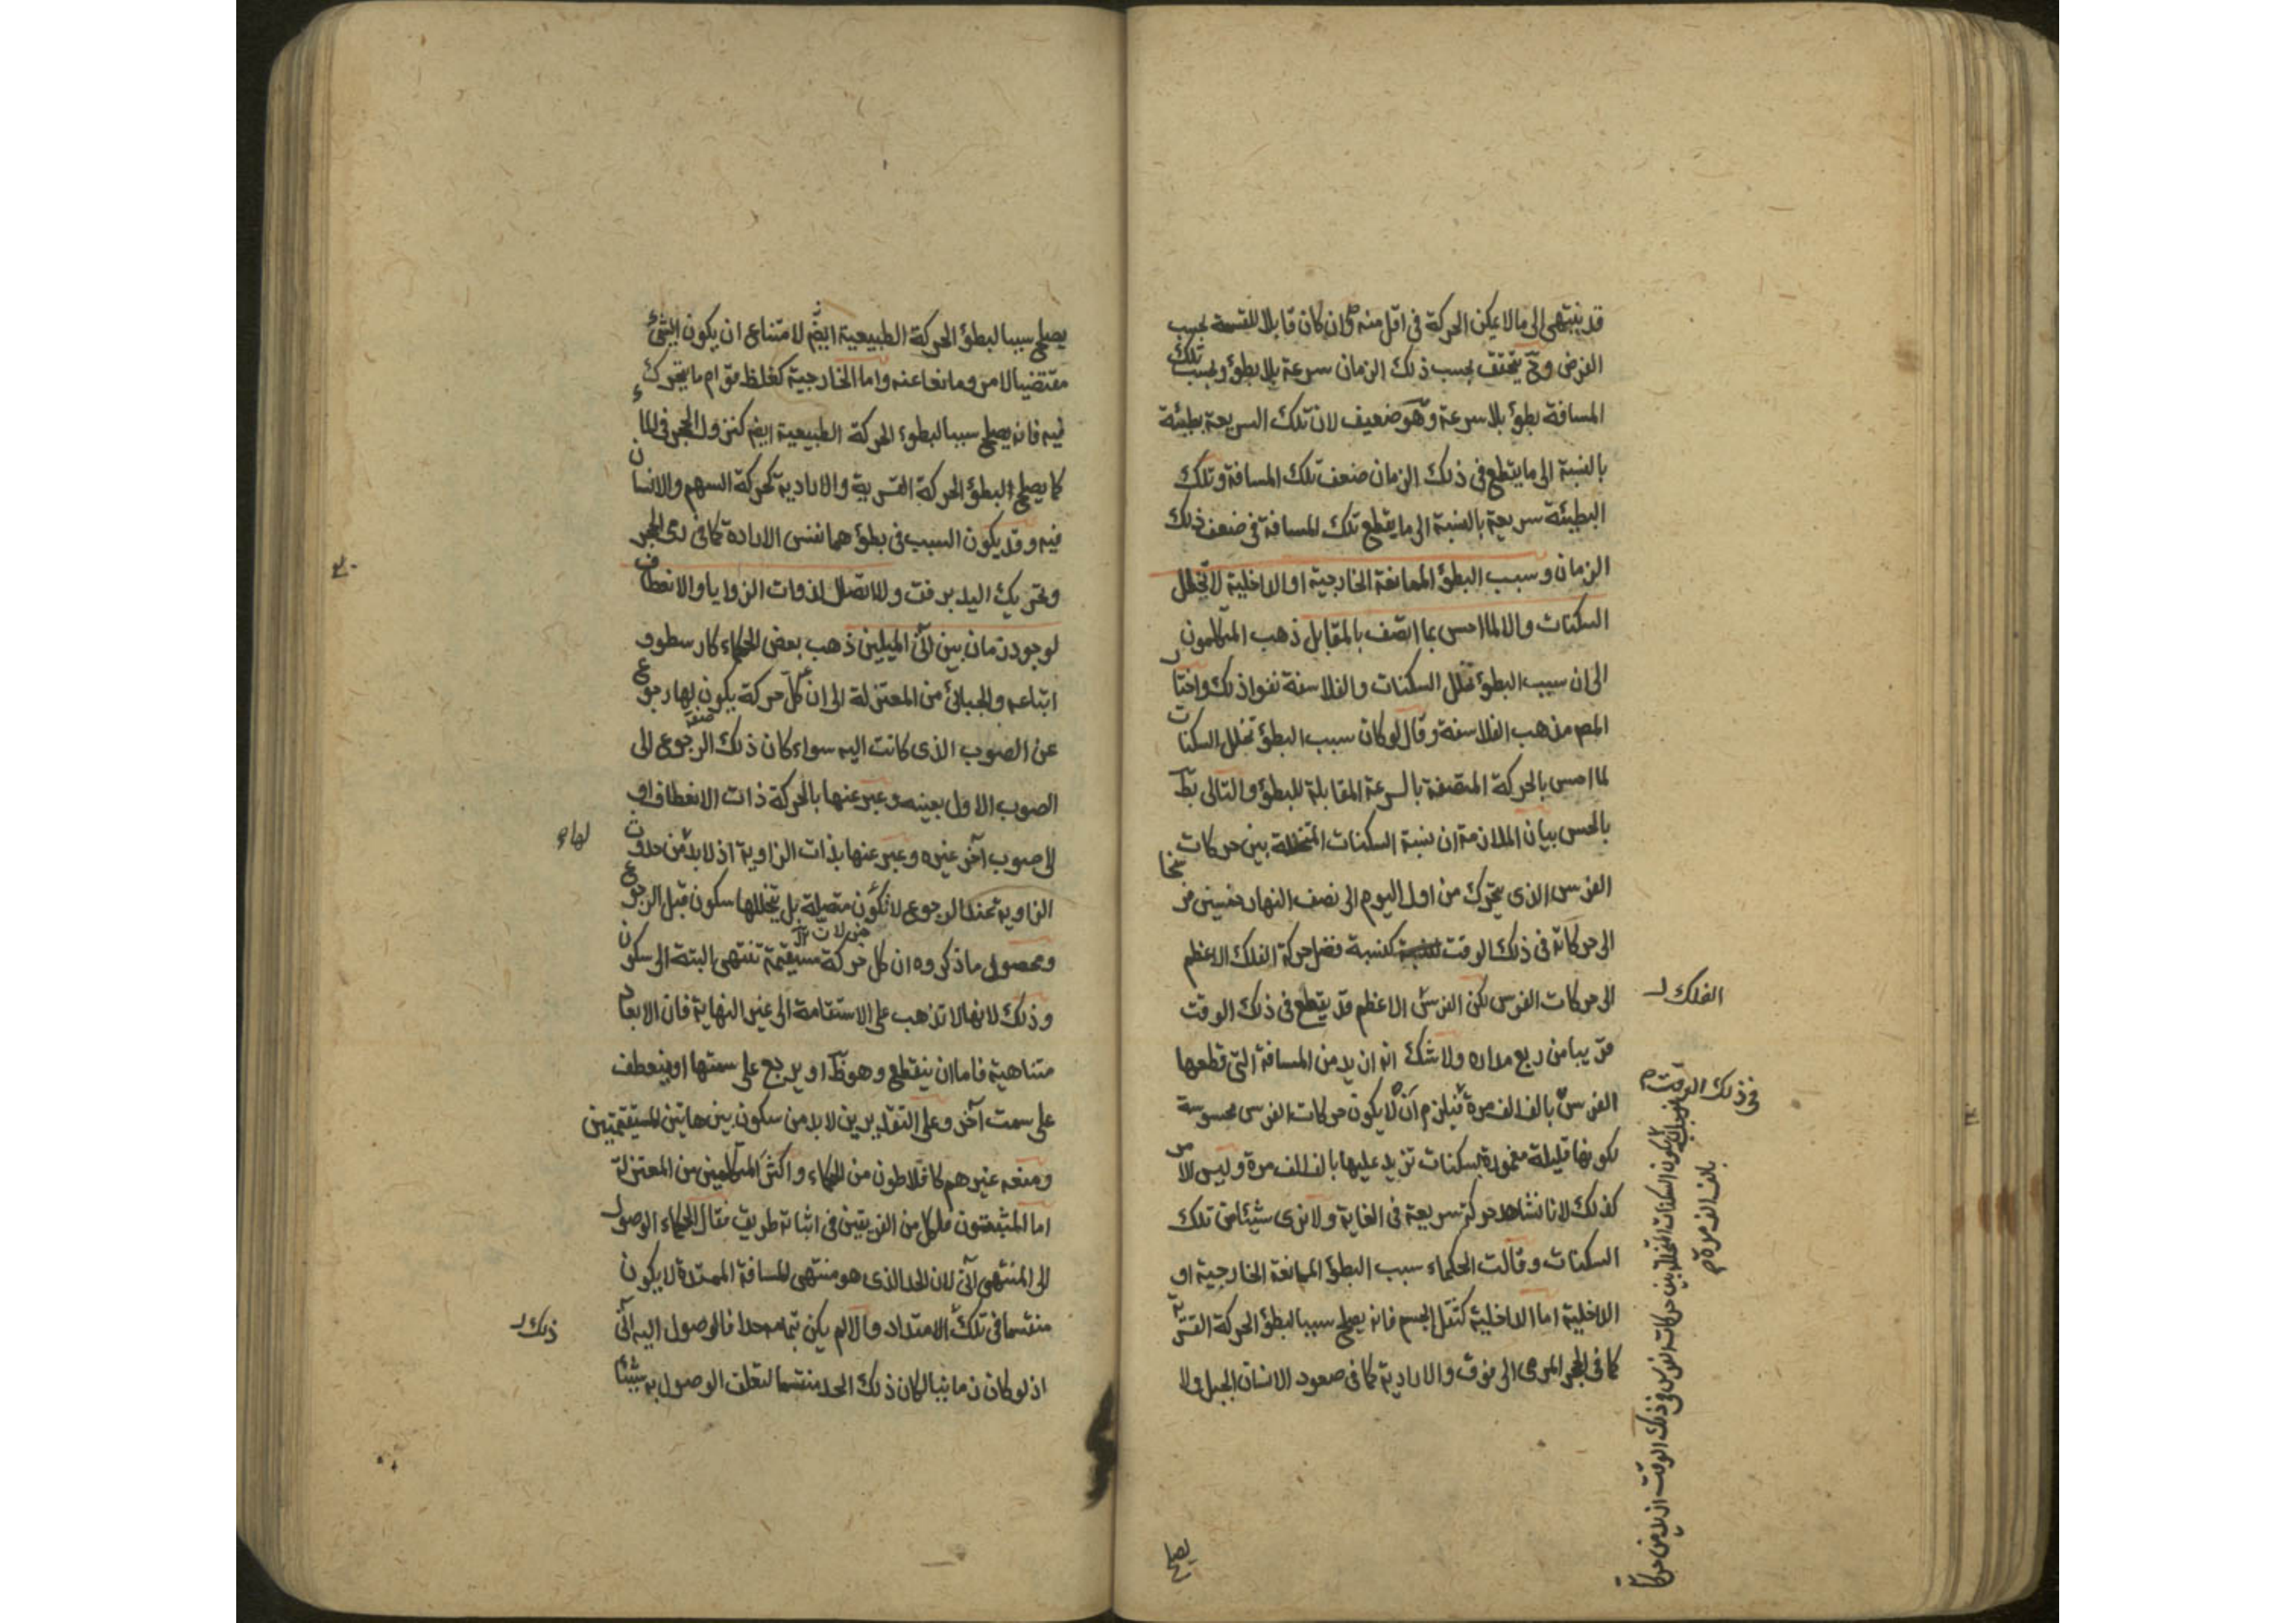 قد ينتهى الى ما لا يمكن الحركة فى اقل منه وان كان قابلا للقسمة بحسب
الفرض وح يتحقق بحسب ذلك الزمان سرعة بلا بطؤ وبحسب تلك
المسافة بطؤ بلا سرعة وهو ضعيف لان تلك السريعة بطيئة
بالنسبة الى ما يقطع فى ذلك الزمان ضعف تلك المسافة وتلك
البطيئة سريعة بالنسبة الى ما يقطع تلك المسافة فى ضعف ذلك
الزمان وسبب البطؤ الممانعة الخارجية او الداخلية لا تخلل
السكنات والا لما احس بما اتصف بالمقابل ذهب المتكلمون
الى ان سبب البطؤ تخلل السكنات والفلاسفة نفوا ذلك واختار
المص مذهب الفلاسفة وقال لو كان سبب البطؤ تخلل السكنات
لما احس بالحركة المتصفة بالسرعة المقابلة للبطؤ والتالى بط
بالحس بيان الملازمة ان نسبة السكنات المتخللة بين حركات
الفرس الذى يتحرك من اول اليوم الى نصف النهار خمسين فرسخا
الى حركاته فى ذلك الوقت كنسبة فضل حركة الفلك الاعظم
الى حركات الفرس لكن الفرس الاعظم قد يقطع فى ذلك الوقت
الفلك
قريبا من ربع مداره ولا شك انه ازيد من المسافة التى قطعها
فى ذلك الوقت
الفرس بالف الف مرة فيلزم ان لا يكون حركات الفرس محسوسة
يكون السكنات المتخللة بين حركات الفرس فى ذلك الوقت ازيد من حركاته
بالف الف مرة
لكونها قليلة مغمورة بسكنات تزيد عليها بالف الف مرة وليس الامر
كذلك لانا نشاهد حركته سريعة فى الغاية ولا نرى شيئا من تلك
السكنات وقالت الحكماء سبب البطؤ الممانعة الخارجية او
الداخلية اما الداخلية كثقل الجسم فانه يصلح سببا لبطؤ الحركة القسرية
كما فى الحجر المرمى الى فوق والارادية كما فى صعود الانسان الجبل ولا
يصلح
يصلح سببا لبطؤ الحركة الطبيعية ايضا لامتناع ان يكون الشئ
مقتضيا لامر ومانعا عنه واما الخارجية كغلظ قوام ما يتحرك
فيه فانه يصلح سببا لبطوء الحركة الطبيعية ايضا كنزول الحجر فى الماء
كما يصلح لبطؤ الحركة القسرية والارادية كحركة السهم والانسان
فيه وقد يكون السبب فى بطؤهما نفس الارادة كما فى رمى الحجر
وتحريك اليد برفق ولا اتصال لذوات الزوايا والانعطاف
لوجود زمان بين آنى الميلين ذهب بعض الحكماء كارسطو و
اتباعه والجبائى من المعتزلة الى ان كل حركة يكون لها رجوع
عن الصوب الذى كانت اليه سواء كان ذلك الرجوع الى
الصوب الاول بعينه وعبر عنها بالحركة ذات الانعطاف او
الى صوب آخر غيره وعبر عنها بذات الزاوية اذ لا بد من حدوث
لها
الزاوية عند الرجوع لا تكون متصلة بل يتخللها سكون قبل الرجوع
ومحصول ما ذكروه ان كل حركة مستقيمة تنتهى البتة الى سكون
وذلك لانها لا تذهب على الاستقامة الى غير النهاية فان الابعاد
متناهية فاما ان ينقطع وهو ظ او يرجع على سمتها او ينعطف
على سمت آخر وعلى التقديرين لا بد من سكون بين هاتين المستقيمتين
ومنعه غيرهم كافلاطون من الحكماء واكثر المتكلمين من المعتزلة
اما المثبتون فلكل من الفريقين فى اثباته طريق فقال الحكماء الوصول
الى المنتهى آنى لان الحد الذى هو منتهى المسافة الممتدة لا يكون
منقسما فى تلك الامتداد والا لم يكن بتمامه حدا فالوصول اليه آنى
ذلك
اذ لو كان زمانيا لكان ذلك الحد منقسما لتعلق الوصول به شيئا